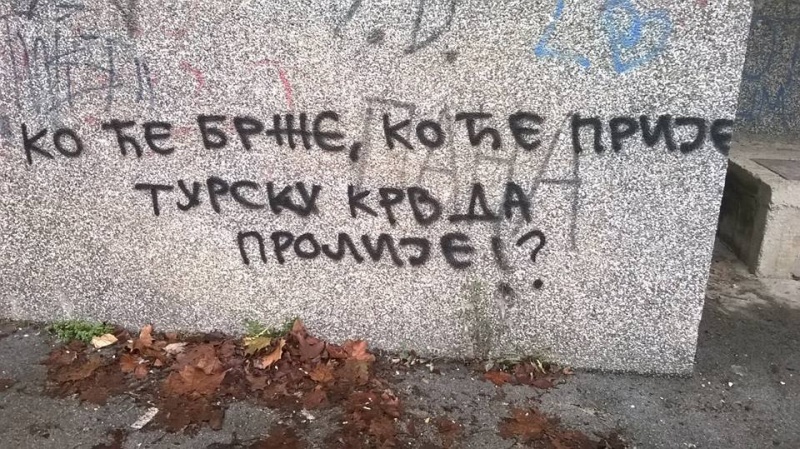 КО ЋЕ БРЖЕ, КО ЋЕ ПРИЈЕ
ТУРСКУ КРВ ДА
ПРОЛИЈЕ!?